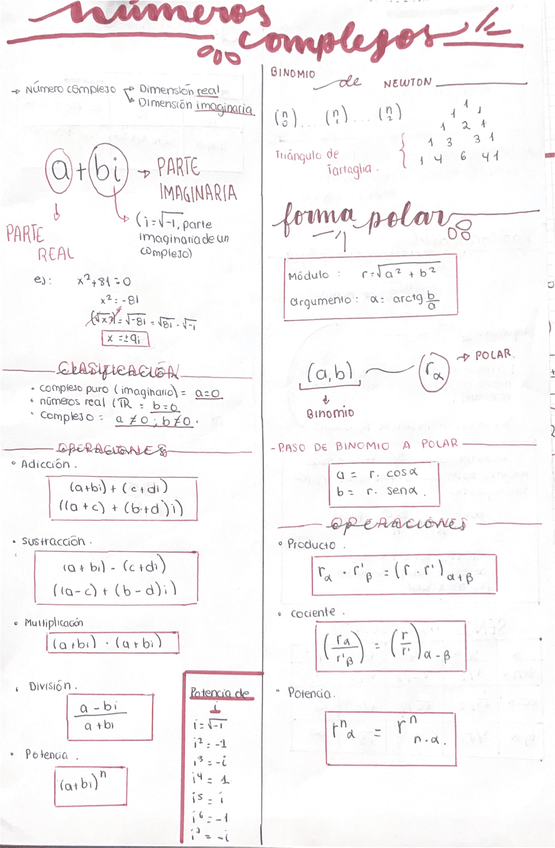 números
complejos
→ Número complejo → Dimensión real
→ Dimensión imaginaria
a + bi → PARTE
IMAGINARIA
PARTE
REAL
(i=√-1, parte
imaginaria de un
complejo)
ej: x²+81=0
x² = -81
√x² = √-81 = √81 · √-1
x = ±9i
CLASIFICACIÓN
• complejo puro (imaginario) = a=0
• números real (ℝ = b=0
• complejo = a ≠ 0 ; b ≠ 0.
OPERACIONES
• Adicción.
(a+bi) + (c+di)
((a+c) + (b+d)i)
• Sustracción.
(a+bi) - (c+di)
((a-c) + (b-d)i)
• Multiplicación
(a+bi) · (a+bi)
• División.
a-bi
a+bi
• Potencia.
(a+bi)ⁿ
Potencia de
i
i=√-1
i² = -1
i³ = -i
i⁴ = 1
i⁵ = i
i⁶ = -1
i⁷ = -i
BINOMIO de NEWTON
(n 0) ... (n 1) ... (n 2)
1 1
1 2 1
1 3 3 1
1 4 6 4 1
Triángulo de
Tartaglia.
forma polar
Módulo: r=√a² + b²
argumento: α= arctg b/a
(a,b) rα → POLAR.
Binomio
- PASO DE BINOMIO A POLAR
a = r. cosα
b = r. senα.
OPERACIONES
• Producto.
rα · r'β = (r · r')α+β
• cociente.
(rα/r'β) = (r/r')α-β
• Potencia.
rⁿα = rⁿ n·α.